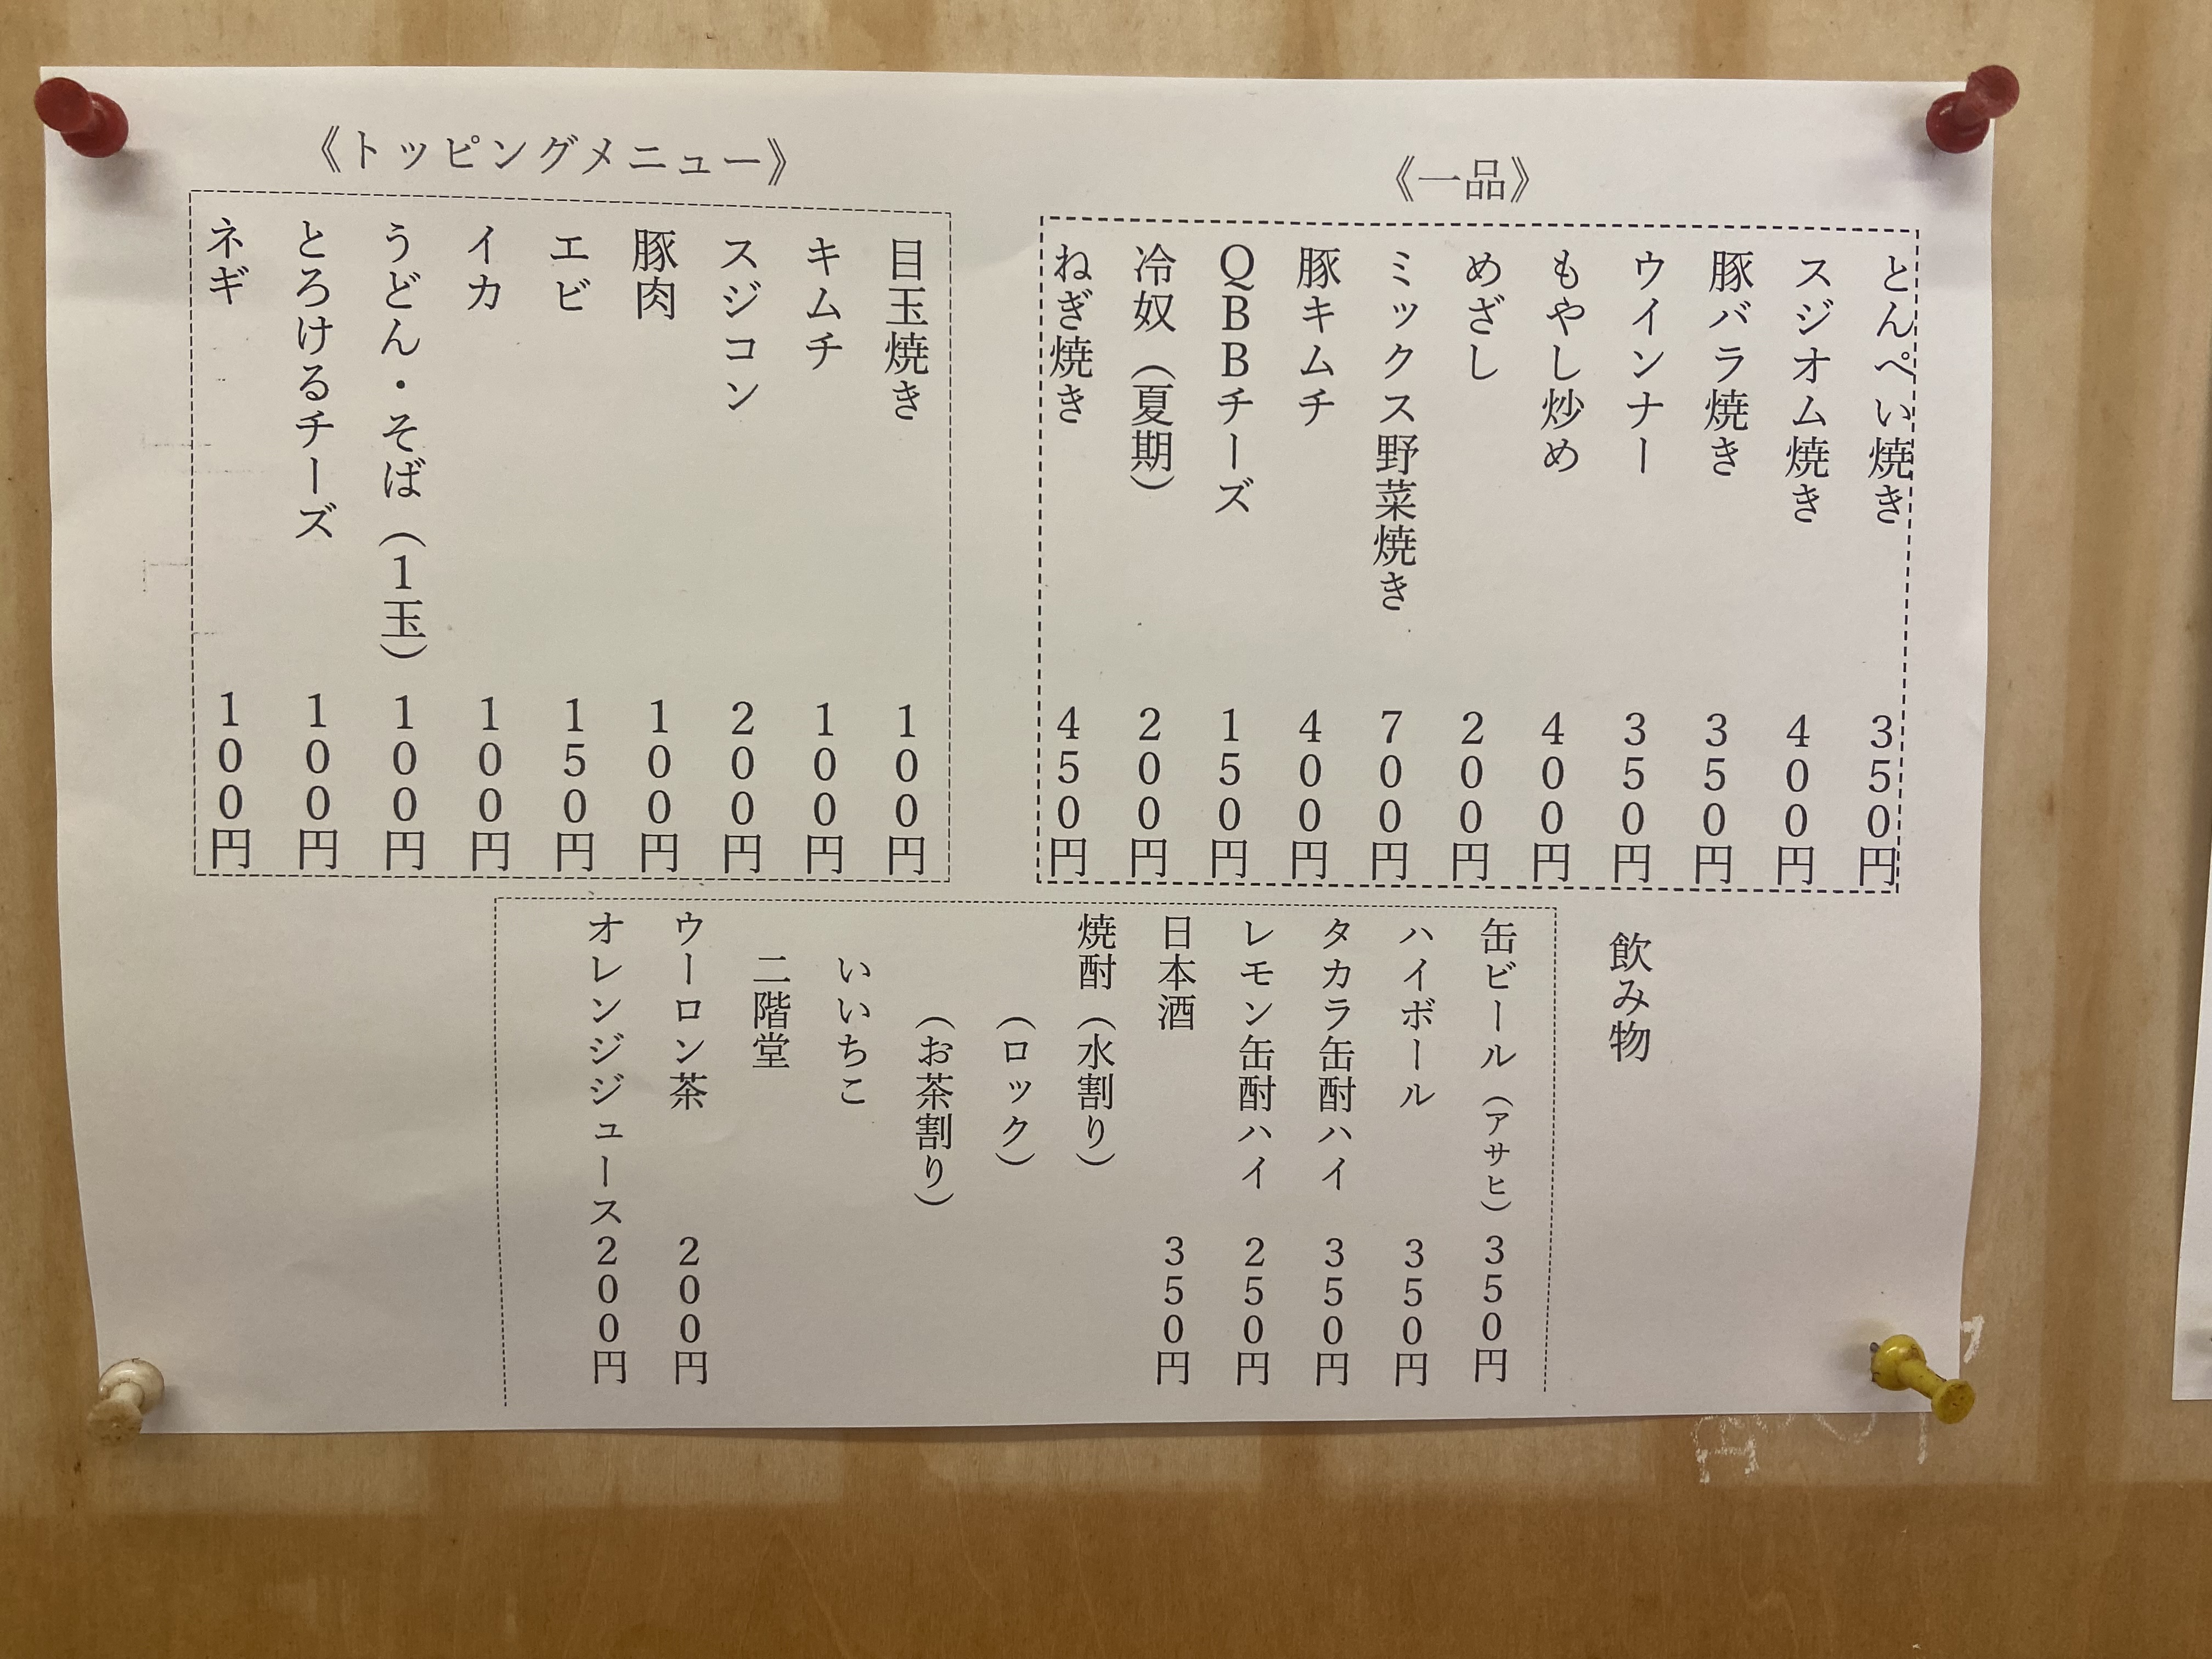 《一品》
とんぺい焼き 350円
スジオム焼き 400円
豚バラ焼き 350円
ウインナー 350円
もやし炒め 400円
めざし 200円
ミックス野菜焼き 700円
豚キムチ 400円
QBBチーズ 150円
冷奴（夏期） 200円
ねぎ焼き 450円
《トッピングメニュー》
目玉焼き 100円
キムチ 100円
スジコン 200円
豚肉 100円
エビ 150円
イカ 100円
うどん・そば（1玉） 100円
とろけるチーズ 100円
ネギ 100円
飲み物
缶ビール（アサヒ） 350円
ハイボール 350円
タカラ缶酎ハイ 350円
レモン缶酎ハイ 250円
日本酒 350円
焼酎（水割り）
（ロック）
（お茶割り）
いいちこ
二階堂
ウーロン茶 200円
オレンジジュース 200円